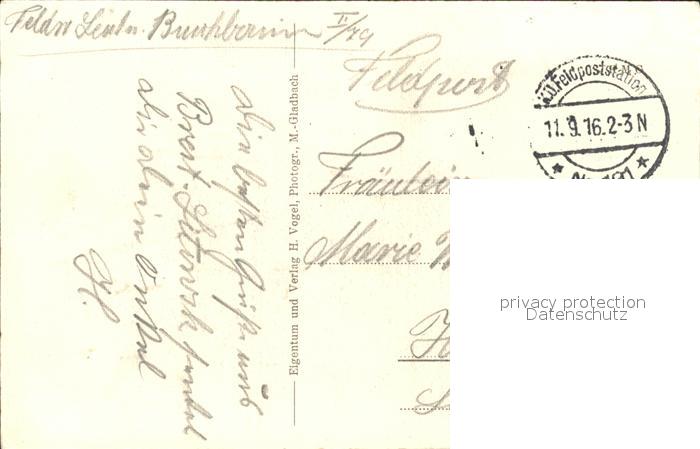 Feldw Leutn. Buchbaum II/79
Feldpost
K.D. Feldpoststation
11. 9. 16. 2-3 N
* No 191 *
Fräulein
Marie
Die besten Grüße aus
Brest-Litowsk sendet
dir dein Onkel
H.
Eigentum und Verlag H. Vogel, Photogr., M.-Gladbach
privacy protection
Datenschutz